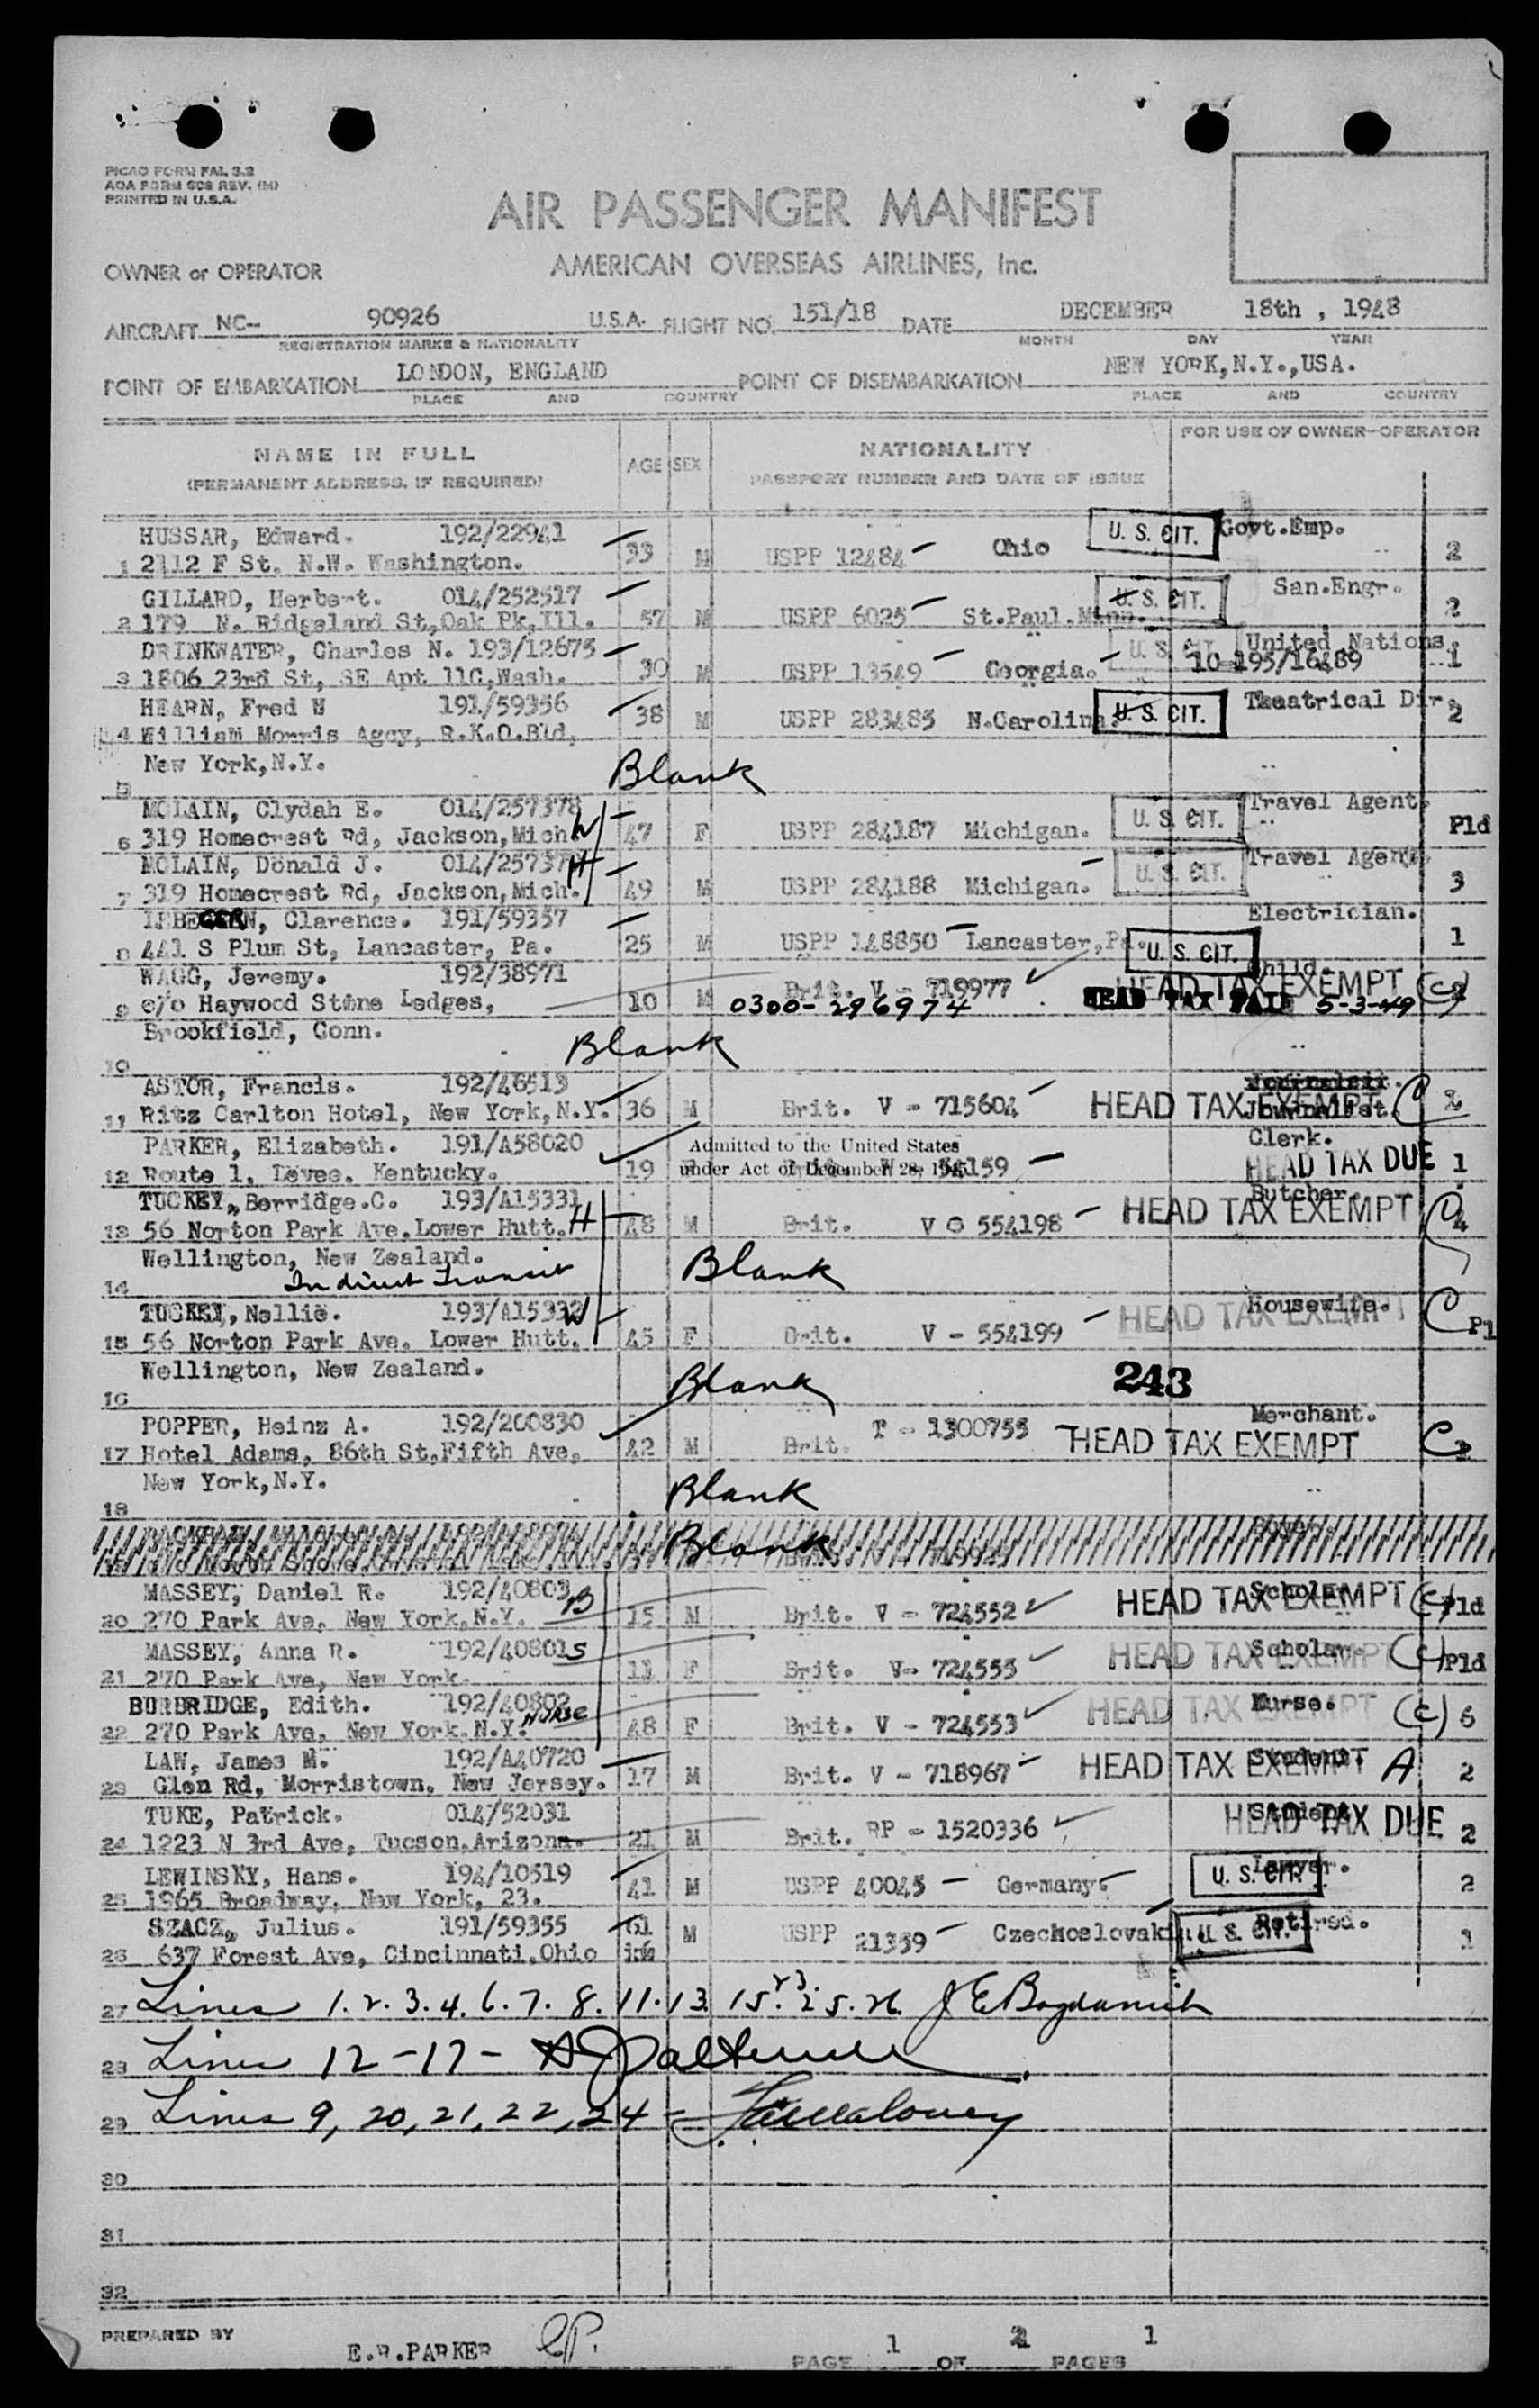 PICAO FORM FAL 3.2
AOA FORM 608 REV. (M)
PRINTED IN U.S.A.
AIR PASSENGER MANIFEST
OWNER or OPERATOR AMERICAN OVERSEAS AIRLINES, Inc.
AIRCRAFT NC- 90926 U.S.A. FLIGHT NO. 151/18 DATE DECEMBER 18th , 1948
REGISTRATION MARKS & NATIONALITY MONTH DAY YEAR
POINT OF EMBARKATION LONDON, ENGLAND POINT OF DISEMBARKATION NEW YORK,N.Y.,USA.
PLACE AND COUNTRY PLACE AND COUNTRY
NAME IN FULL AGE SEX NATIONALITY FOR USE OF OWNER-OPERATOR
(PERMANENT ADDRESS, IF REQUIRED) PASSPORT NUMBER AND DATE OF ISSUE
HUSSAR, Edward. 192/22941 U. S. CIT. Govt.Emp.
1 2112 F St. N.W. Washington. 33 M USPP 12484 Ohio 2
GILLARD, Herbert. 014/252517 U. S. CIT. San.Engr.
2 179 N. Ridgeland St,Oak Pk,Ill. 57 M USPP 6025 St.Paul.Minn. 2
DRINKWATER, Charles N. 193/12675 U. S. CIT. United Nations.
3 1806 23rd St, SE Apt 11C,Wash. 30 M USPP 13549 Georgia. 10-195/16489 1
HEARN, Fred W 191/59356 U. S. CIT. Theatrical Dir.
4 William Morris Agcy, R.K.O.Bld, 38 M USPP 283485 N.Carolina. 2
New York,N.Y. Blank
5
MCLAIN, Clydah E. 014/257378 W U. S. CIT. Travel Agent.
6 319 Homecrest Rd, Jackson,Mich 47 F USPP 284187 Michigan. Pld
MCLAIN, Donald J. 014/25737 H U. S. CIT. Travel Agent.
7 319 Homecrest Rd, Jackson,Mich. 49 M USPP 284188 Michigan. 3
Clarence. 191/59357 Electrician.
8 441 S Plum St, Lancaster, Pa. 25 M USPP 148850 Lancaster,Pa. U. S. CIT. 1
WAGG, Jeremy. 192/38971 Brit. V - 719977 Child. HEAD TAX EXEMPT (C)
9 c/o Haywood Stone Ledges, 10 M 0300-296974 HEAD TAX PAID 5-3-49
Brookfield, Conn. Blank
10
ASTOR, Francis. 192/46513
11 Ritz Carlton Hotel, New York,N.Y. 36 M Brit. V - 715604 HEAD TAX EXEMPT Journalist. C 2
PARKER, Elizabeth. 191/A58020 Admitted to the United States Clerk.
12 Route 1, Kentucky. 19 under Act of December 28, 1945 54159 HEAD TAX DUE 1
TUCKEY, Berridge.C. 193/A15331 Butcher.
13 56 Norton Park Ave.Lower Hutt. H 48 M Brit. V 554198 HEAD TAX EXEMPT C 4
Wellington, New Zealand. Blank
14 In direct Transit
TUCKEY, Nellie. 193/A15332 W Housewife.
15 56 Norton Park Ave. Lower Hutt. 45 F Brit. V - 554199 HEAD TAX EXEMPT C Pl
Wellington, New Zealand. Blank 243
16
POPPER, Heinz A. 192/200830 Merchant.
17 Hotel Adams, 86th St,Fifth Ave, 42 M Brit. T - 1300755 HEAD TAX EXEMPT C
New York,N.Y. Blank
18
Blank
MASSEY, Daniel R. 192/40803 B Scholar.
20 270 Park Ave, New York,N.Y. 15 M Brit. V - 724552 HEAD TAX EXEMPT (C) Pld
MASSEY, Anna R. 192/40801 S Scholar.
21 270 Park Ave, New York. 11 F Brit. V- 724555 HEAD TAX EXEMPT (C) Pld
BURBRIDGE, Edith. 192/40802 Nurse Nurse.
22 270 Park Ave, New York.N.Y. 48 F Brit. V - 724553 HEAD TAX EXEMPT (C) 6
LAW, James M. 192/A40720 Student.
23 Glen Rd, Morristown, New Jersey. 17 M Brit. V - 718967 HEAD TAX EXEMPT A 2
TUKE, Patrick. 014/52031 Student.
24 1223 N 3rd Ave, Tucson,Arizona. 21 M Brit. RP - 1520336 HEAD TAX DUE 2
LEWINSKY, Hans. 194/10519 Lawyer.
25 1965 Broadway, New York, 23. 41 M USPP 40045 Germany. U. S. CIT. 2
SZACZ, Julius. 191/59355 61 Retired.
26 637 Forest Ave, Cincinnati,Ohio inf M USPP 21359 Czechoslovakia U. S. CIT. 1
27 Lines 1. 2. 3. 4. 6. 7. 8. 11. 13. 15. 23. 25. 26.
28 Lines 12 - 17 -
29 Lines 9, 20, 21, 22, 24 -
30
31
32
PREPARED BY E.R.PARKER EP. PAGE 1 OF 2 PAGES 1